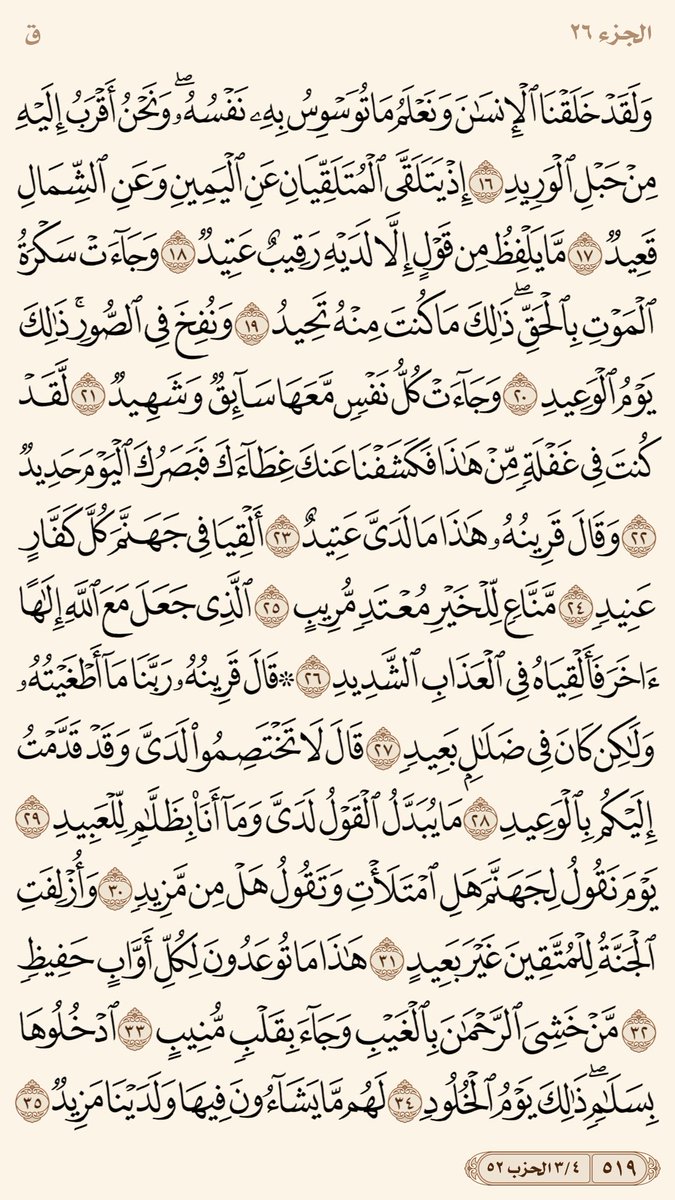 الجزء ٢٦
ق
وَلَقَدۡ خَلَقۡنَا ٱلۡإِنسَٰنَ وَنَعۡلَمُ مَا تُوَسۡوِسُ بِهِۦ نَفۡسُهُۥۖ وَنَحۡنُ أَقۡرَبُ إِلَيۡهِ
مِنۡ حَبۡلِ ٱلۡوَرِيدِ ١٦ إِذۡ يَتَلَقَّى ٱلۡمُتَلَقِّيَانِ عَنِ ٱلۡيَمِينِ وَعَنِ ٱلشِّمَالِ
قَعِيدٞ ١٧ مَّا يَلۡفِظُ مِن قَوۡلٍ إِلَّا لَدَيۡهِ رَقِيبٌ عَتِيدٞ ١٨ وَجَآءَتۡ سَكۡرَةُ
ٱلۡمَوۡتِ بِٱلۡحَقِّۖ ذَٰلِكَ مَا كُنتَ مِنۡهُ تَحِيدُ ١٩ وَنُفِخَ فِي ٱلصُّورِۚ ذَٰلِكَ
يَوۡمُ ٱلۡوَعِيدِ ٢٠ وَجَآءَتۡ كُلُّ نَفۡسٖ مَّعَهَا سَآئِقٞ وَشَهِيدٞ ٢١ لَّقَدۡ
كُنتَ فِي غَفۡلَةٖ مِّنۡ هَٰذَا فَكَشَفۡنَا عَنكَ غِطَآءَكَ فَبَصَرُكَ ٱلۡيَوۡمَ حَدِيدٞ
٢٢ وَقَالَ قَرِينُهُۥ هَٰذَا مَا لَدَيَّ عَتِيدٌ ٢٣ أَلۡقِيَا فِي جَهَنَّمَ كُلَّ كَفَّارٍ
عَنِيدٖ ٢٤ مَّنَّاعٖ لِّلۡخَيۡرِ مُعۡتَدٖ مُّرِيبٍ ٢٥ ٱلَّذِي جَعَلَ مَعَ ٱللَّهِ إِلَٰهًا
ءَاخَرَ فَأَلۡقِيَاهُ فِي ٱلۡعَذَابِ ٱلشَّدِيدِ ٢٦ ۞قَالَ قَرِينُهُۥ رَبَّنَا مَآ أَطۡغَيۡتُهُۥ
وَلَٰكِن كَانَ فِي ضَلَٰلِۭ بَعِيدٖ ٢٧ قَالَ لَا تَخۡتَصِمُواْ لَدَيَّ وَقَدۡ قَدَّمۡتُ
إِلَيۡكُم بِٱلۡوَعِيدِ ٢٨ مَا يُبَدَّلُ ٱلۡقَوۡلُ لَدَيَّ وَمَآ أَنَا۠ بِظَلَّٰمٖ لِّلۡعَبِيدِ ٢٩
يَوۡمَ نَقُولُ لِجَهَنَّمَ هَلِ ٱمۡتَلَأۡتِ وَتَقُولُ هَلۡ مِن مَّزِيدٖ ٣٠ وَأُزۡلِفَتِ
ٱلۡجَنَّةُ لِلۡمُتَّقِينَ غَيۡرَ بَعِيدٍ ٣١ هَٰذَا مَا تُوعَدُونَ لِكُلِّ أَوَّابٍ حَفِيظٖ
٣٢ مَّنۡ خَشِيَ ٱلرَّحۡمَٰنَ بِٱلۡغَيۡبِ وَجَآءَ بِقَلۡبٖ مُّنِيبٍ ٣٣ ٱدۡخُلُوهَا
بِسَلَٰمٖۖ ذَٰلِكَ يَوۡمُ ٱلۡخُلُودِ ٣٤ لَهُم مَّا يَشَآءُونَ فِيهَا وَلَدَيۡنَا مَزِيدٞ ٣٥
٥١٩ ٣/٤ الحزب ٥٢